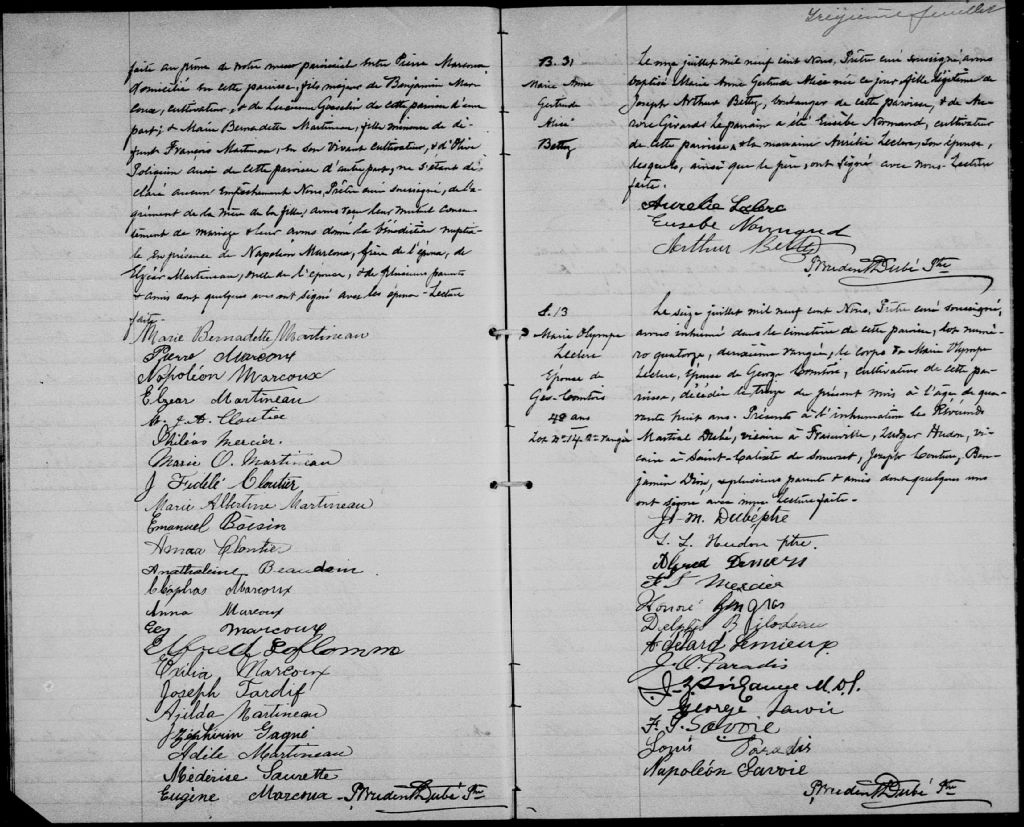 faite au prône de notre messe paroissiale entre Pierre Marcoux
domicilié en cette paroisse, fils majeur de Benjamin Mar-
coux, cultivateur, & de Gosselin de cette paroisse d'une
part; & Marie Bernadette Martineau, fille mineure de dé-
funt François Martineau, en son vivant cultivateur, & d'Olive
Poliquin aussi de cette paroisse d'autre part, ne s'étant dé-
claré aucun empêchement Nous, Prêtre curé soussigné, de l'a-
grément de la mère de la fille, avons reçu leur mutuel consen-
tement de mariage & leur avons donné la bénédiction nuptia-
le en présence de Napoléon Marcoux, frère de l'époux, de
Elzéar Martineau, oncle de l'épouse, & de plusieurs parents
& amis dont quelques uns ont signé avec les époux - Lecture
faite -
Marie Bernadette Martineau
Pierre Marcoux
Napoléon Marcoux
Elzear Martineau
J. A. Cloutier
Philéas Mercier.
Marie O. Martineau
J Fidèle Cloutier
Marie Albertine Martineau
Emanuel Boisin
Anna Cloutier
Beaudoin
Cléophas Marcoux
Anna Marcoux
Marcoux
Alfred Laflamme
Exilia Marcoux
Joseph Tardif
Ajilda Martineau
J Zéphirin Gagné
Adèle Martineau
Médérise Laurette
Eugène Marcoux - P. Prudent Dubé Ptre
Treizième feuillet
B. 31
Marie Anne
Gertrude
Alice
Betty
Le onze juillet mil neuf cent Nous, Prêtre curé soussigné, avons
baptisé Marie Anne Gertrude Alice née ce jour, fille légitime de
Joseph Arthur Betty, boulanger de cette paroisse, & de Au-
rore Girard. Le parrain a été Eusèbe Normand, cultivateur
de cette paroisse, & la marraine Aurélie Leclerc, son épouse,
lesquels, ainsi que le père, ont signé avec nous - Lecture
faite.
Aurelie Leclerc
Eusebe Normand
Arthur Betty
P. Prudent Dubé Ptre
S. 13
Marie Olympe
Leclerc
Epouse de
Geo. Comtois
48 ans
Lot No. 14. 2e rangée
Le seize juillet mil neuf cent Nous, Prêtre curé soussigné,
avons inhumé dans le cimetière de cette paroisse, lot numé-
ro quatorze, deuxième rangée, le corps de Marie Olympe
Leclerc, épouse de George Comtois, cultivateur de cette pa-
roisse, décédée le treize du présent mois à l'âge de qua-
rante huit ans. Présents à l'inhumation les Révérends
Martial Dubé, vicaire à Fraserville, Ludger Hudon, vi-
caire à Saint-Calixte de Somerset, Joseph Couture, Ben-
jamin Dion, & plusieurs parents & amis dont quelques uns
ont signé avec nous Lecture faite -
J. M. Dubé ptre
L. L. Hudon ptre.
Alfred Demers
Mercier
Honoré Gingras
Delphis Bilodeau
Adelard Lemieux
J. O. Paradis
M.D.
George Savoie
F. J. Savoie
Louis Paradis
Napoléon Savoie
P. Prudent Dubé Ptre